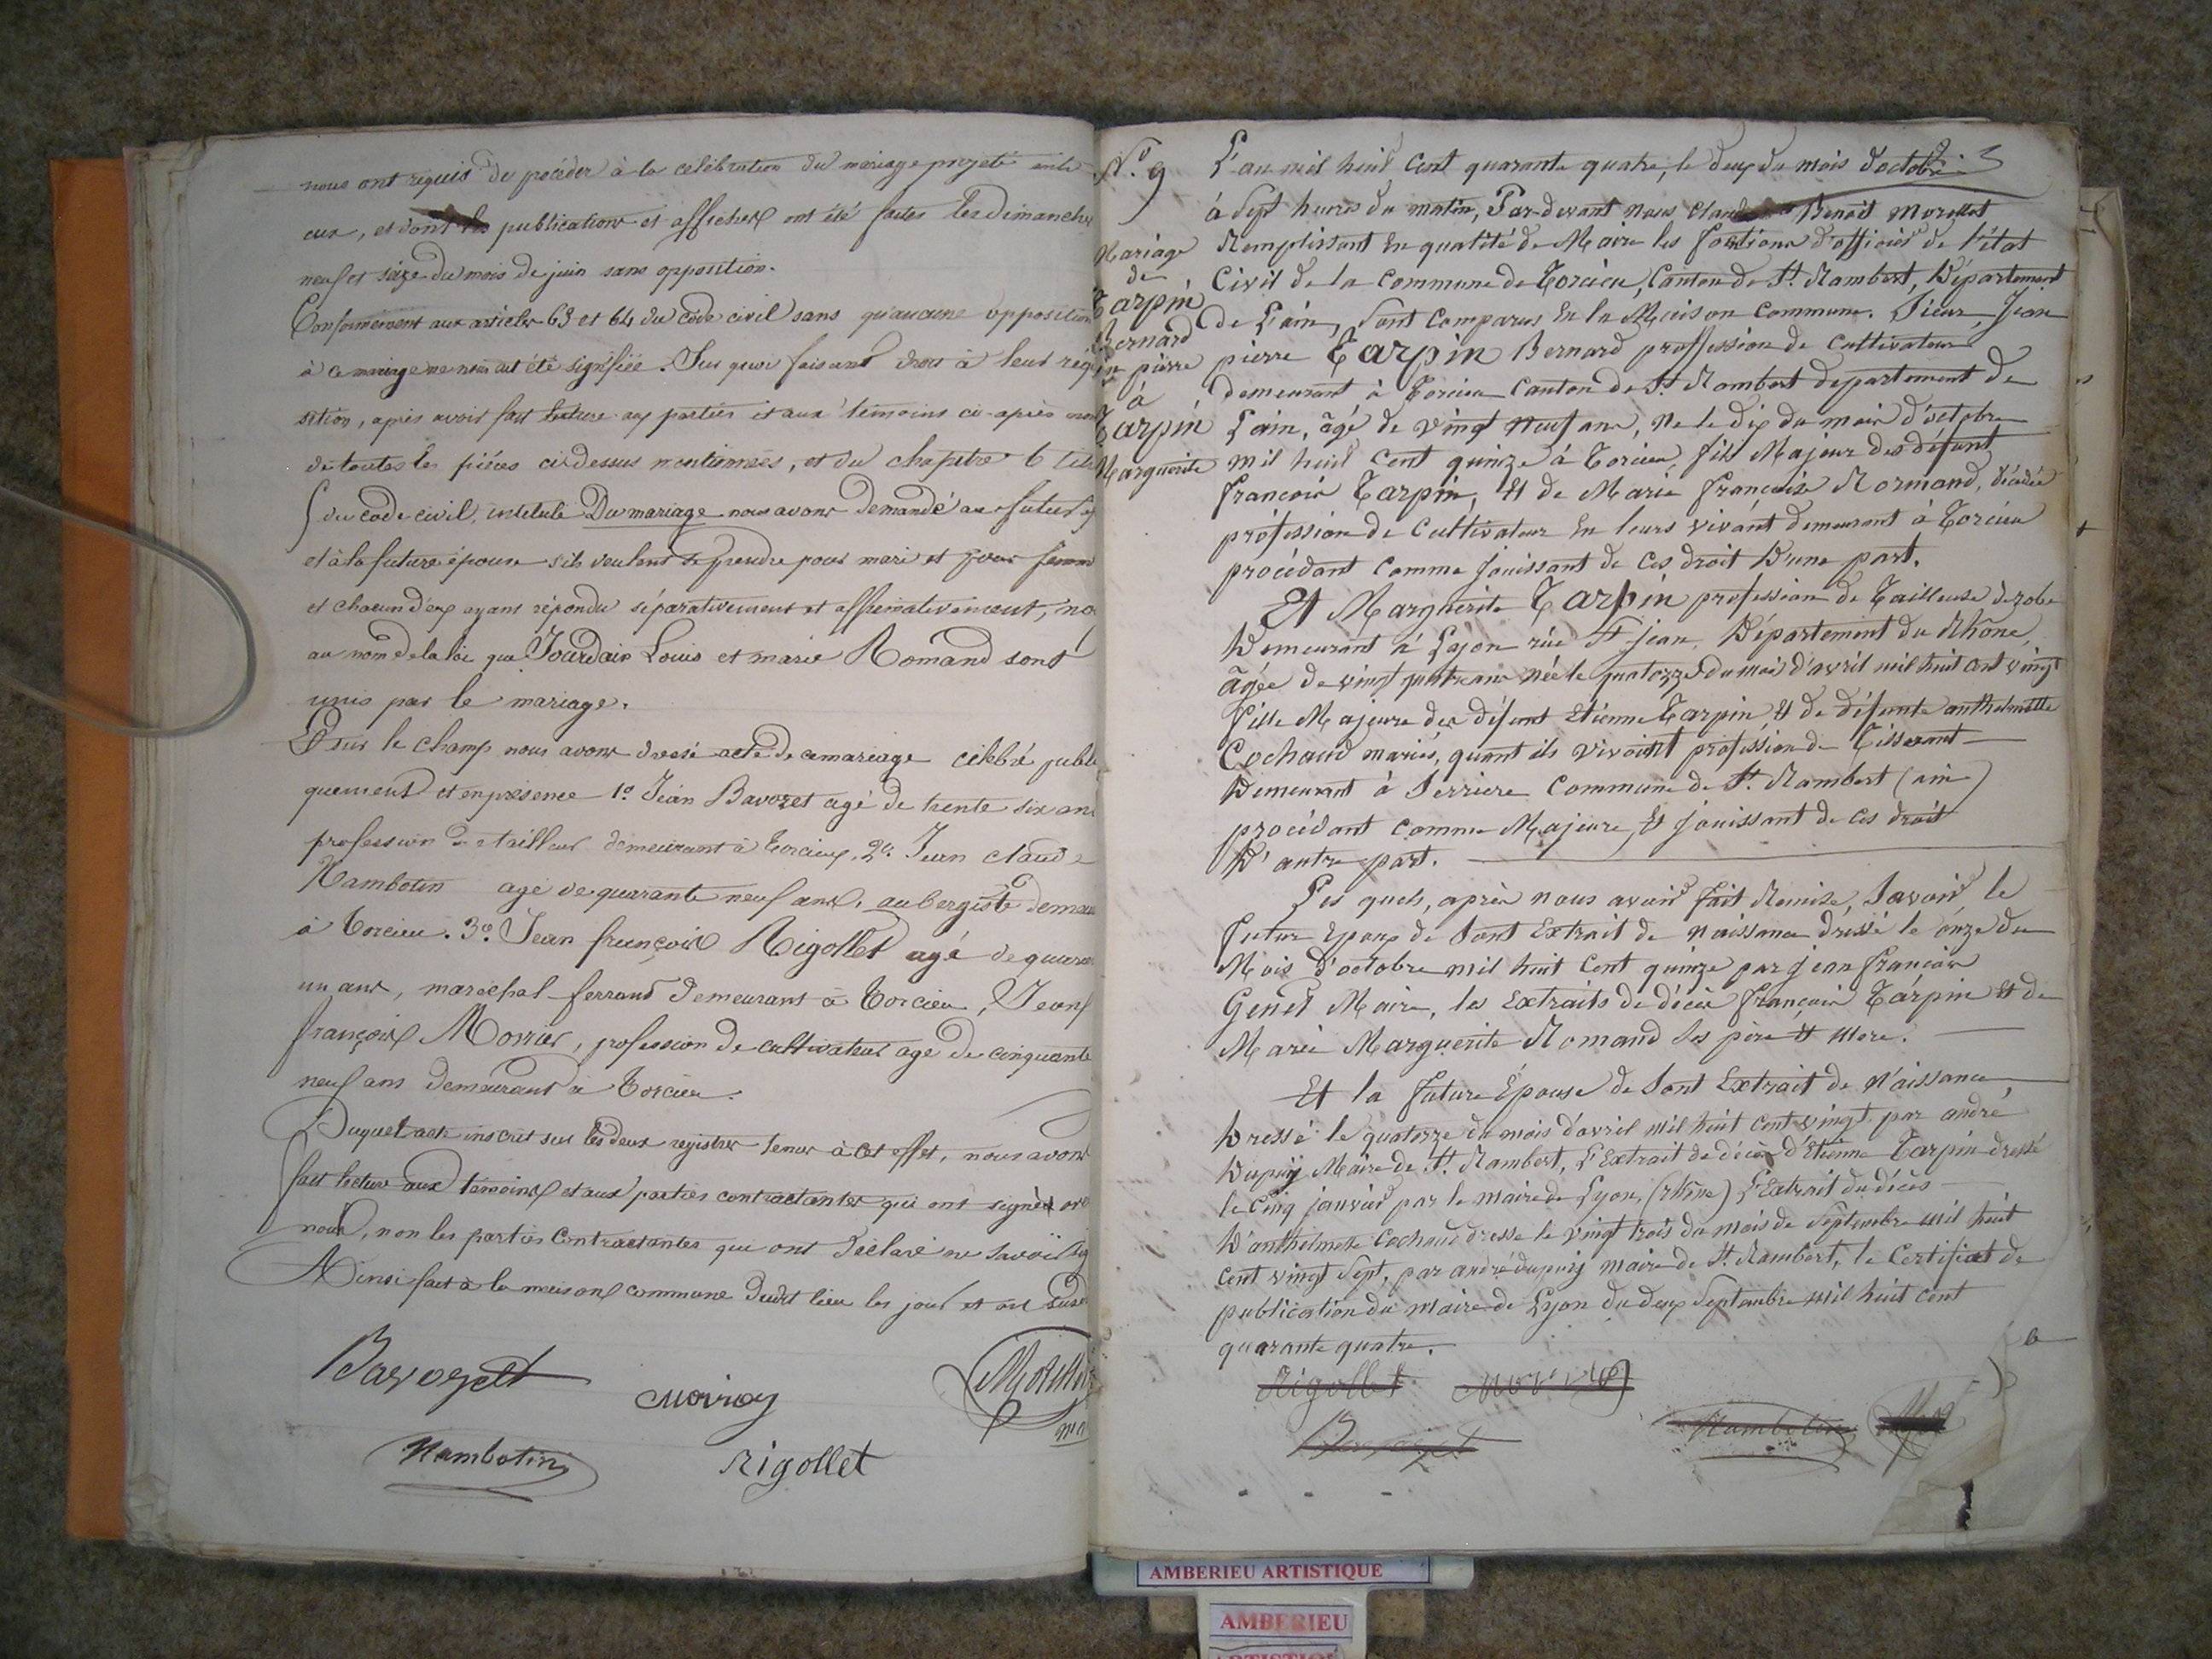 nous ont requis de procéder à la célébration du mariage projeté entr
eux, et dont les publications et affiches ont été faites les dimanches
neuf et seize du mois de juin sans opposition.
Conformément aux articles 63 et 64 du code civil sans qu'aucune opposition
à ce mariage ne nous ait été signifiée. Sur quoi faisant droit à leur réqui
sition, après avoir fait lecture aux parties et aux témoins ci-après nom
de toutes les pièces ci dessus mentionnées, et du chapitre 6 titre
du code civil, intitulé Du mariage nous avons demandé au futur ép
et à la future épouse s'ils veulent se prendre pour mari et pour femme
et chacun d'eux ayant répondu séparativement et affirmativement, no
au nom de la loi que Jourdain Louis et marie Romand sont
unis par le mariage.
Et sur le champ nous avons dressé acte de ce mariage célébré publi
quement et en présence 1º Jean Bavozet agé de trente six ans
profession de tailleur demeurant à Torcieu, 2º Jean claude
Rambotin agé de quarante neuf ans, aubergiste demeu
à Torcieu. 3º Jean françois Rigollet agé de quaran
un ans, maréchal ferrand demeurant à Torcieu, Jean
françois Moiroy, profession de cultivateur agé de cinquante
neuf ans demeurant à Torcieu.
Duquel acte inscrit sur les deux registres tenus à cet effet, nous avons
fait lecture aux témoins et aux parties contractantes qui ont signé av
nous, non les parties contractantes qui ont déclaré ne savoir sig
Ainsi fait à la maison commune dudit lieu les jour et an susd
Bavozet
moiroy
Rambotin
Rigollet
Nº 9
Mariage
de
Tarpin
Bernard
Jn pierre
à
Tarpin
Marguerite
L'an mil huit cent quarante quatre, le deux du mois d'octobre
à Sept heures du matin, Par-devant nous Claude Benoit Morellet
Remplissant En qualité de Maire les fontions d'officier de l'état
Civil de la Commune de Torcieu, Canton de St. Rambert, Département
de L'ain, Sont Comparus En la Maison Commune. Sieur, Jean
pierre Tarpin Bernard proffession de Cultivateur
demeurant à Torcieu Canton de St Rambert département de
L'ain, âgé de vingt neuf ans, Né le dix du mois d'octobre
mil huit cent quinze à Torcieu, fils Majeur des défunt
françois Tarpin, Et de Marie françoise Normand, décédés
profession de Cultivateur En leurs vivant demeurant à Torcieu
procédant Comme Jouissant de Ces droit D'une part.
Et Marguerite Tarpin profession de Tailleuse de robe
Demeurant à Lyon rüe St jean, Département du Rhône,
âgée de vingt quatre ans née le quatorze du mois d'avril mil huit cent vingt
fille Majeure des défunt Etienne Tarpin Et de défunte anthelmette
Cochaud mariés, quant ils vivoint profession de Tisserant
Demeurant à Serriere Commune de St. Rambert (ain)
procédant Comme Majeure, Et Jouissant de Ces droit
D'autre part.
Les quels, après nous avoir fait Remise, Savoir, le
futur Epoux de Sont Extrait de Naissance dréssé le onze du
Mois d'octobre mil huit Cent quinze par jean françois
Genet Maire, les Extraits de décès françois Tarpin Et de
Marie Marguerite Romand Ses père Et Mere.
Et la future Épouse de Sont Extrait de Naissance,
Dressé le quatorze du mois d'avril mil huit cent vingt par andré
Dupuij Maire de St. Rambert, L'Extrait de décès d'Etienne Tarpin dressé
le Cinq janvier par le maire de Lyon, (rhône) L'Extrait du décès
D'anthelmette Cochaud dresse le vingt trois du mois de Septembre mil huit
cent vingt Sept, par andré dupuij maire de St. Rambert, le Certificat de
publication du maire de Lyon du deux Septembre mil huit cent
quarante quatre.
Rigollet
Bavozet
Rambotin
AMBERIEU ARTISTIQUE
AMBERIEU
ARTISTIQUE